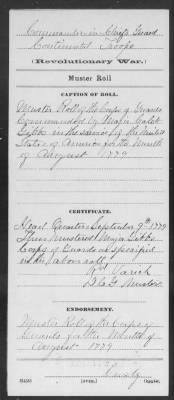 Commander in Chiefs Guard
Continental Troops
(Revolutionary War.)
Muster Roll
CAPTION OF ROLL.
Muster Roll of the Corps of Guards
Commanded by Major Caleb
Gibbs in the service of the United
States of America for the Month
of August 1779
CERTIFICATE.
Head Quarters September 9th 1779
Then Mustered Major Gibbs
Corps of Guards as specified
in the above roll
Rd Varick
ENDORSEMENT.
Muster Roll of the Corps of
Guards for the Month of
August 1779
(575b)
Copyist.